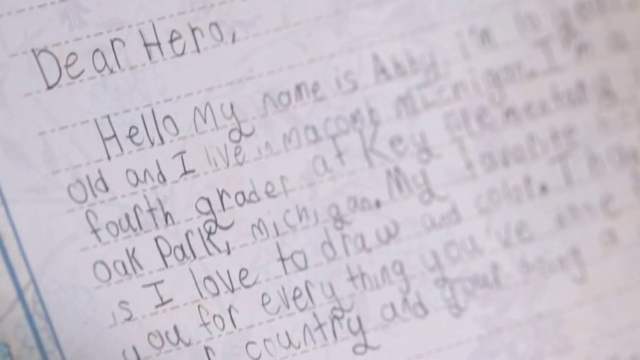 Dear Hero,
Hello My name is Abby. I'm
old and I live in Macomb Michigan. I'm a
fourth grader at Key Elementary
Oak Park, Michigan. My favorite
is I love to draw and color. I
you for every thing you've
country and your